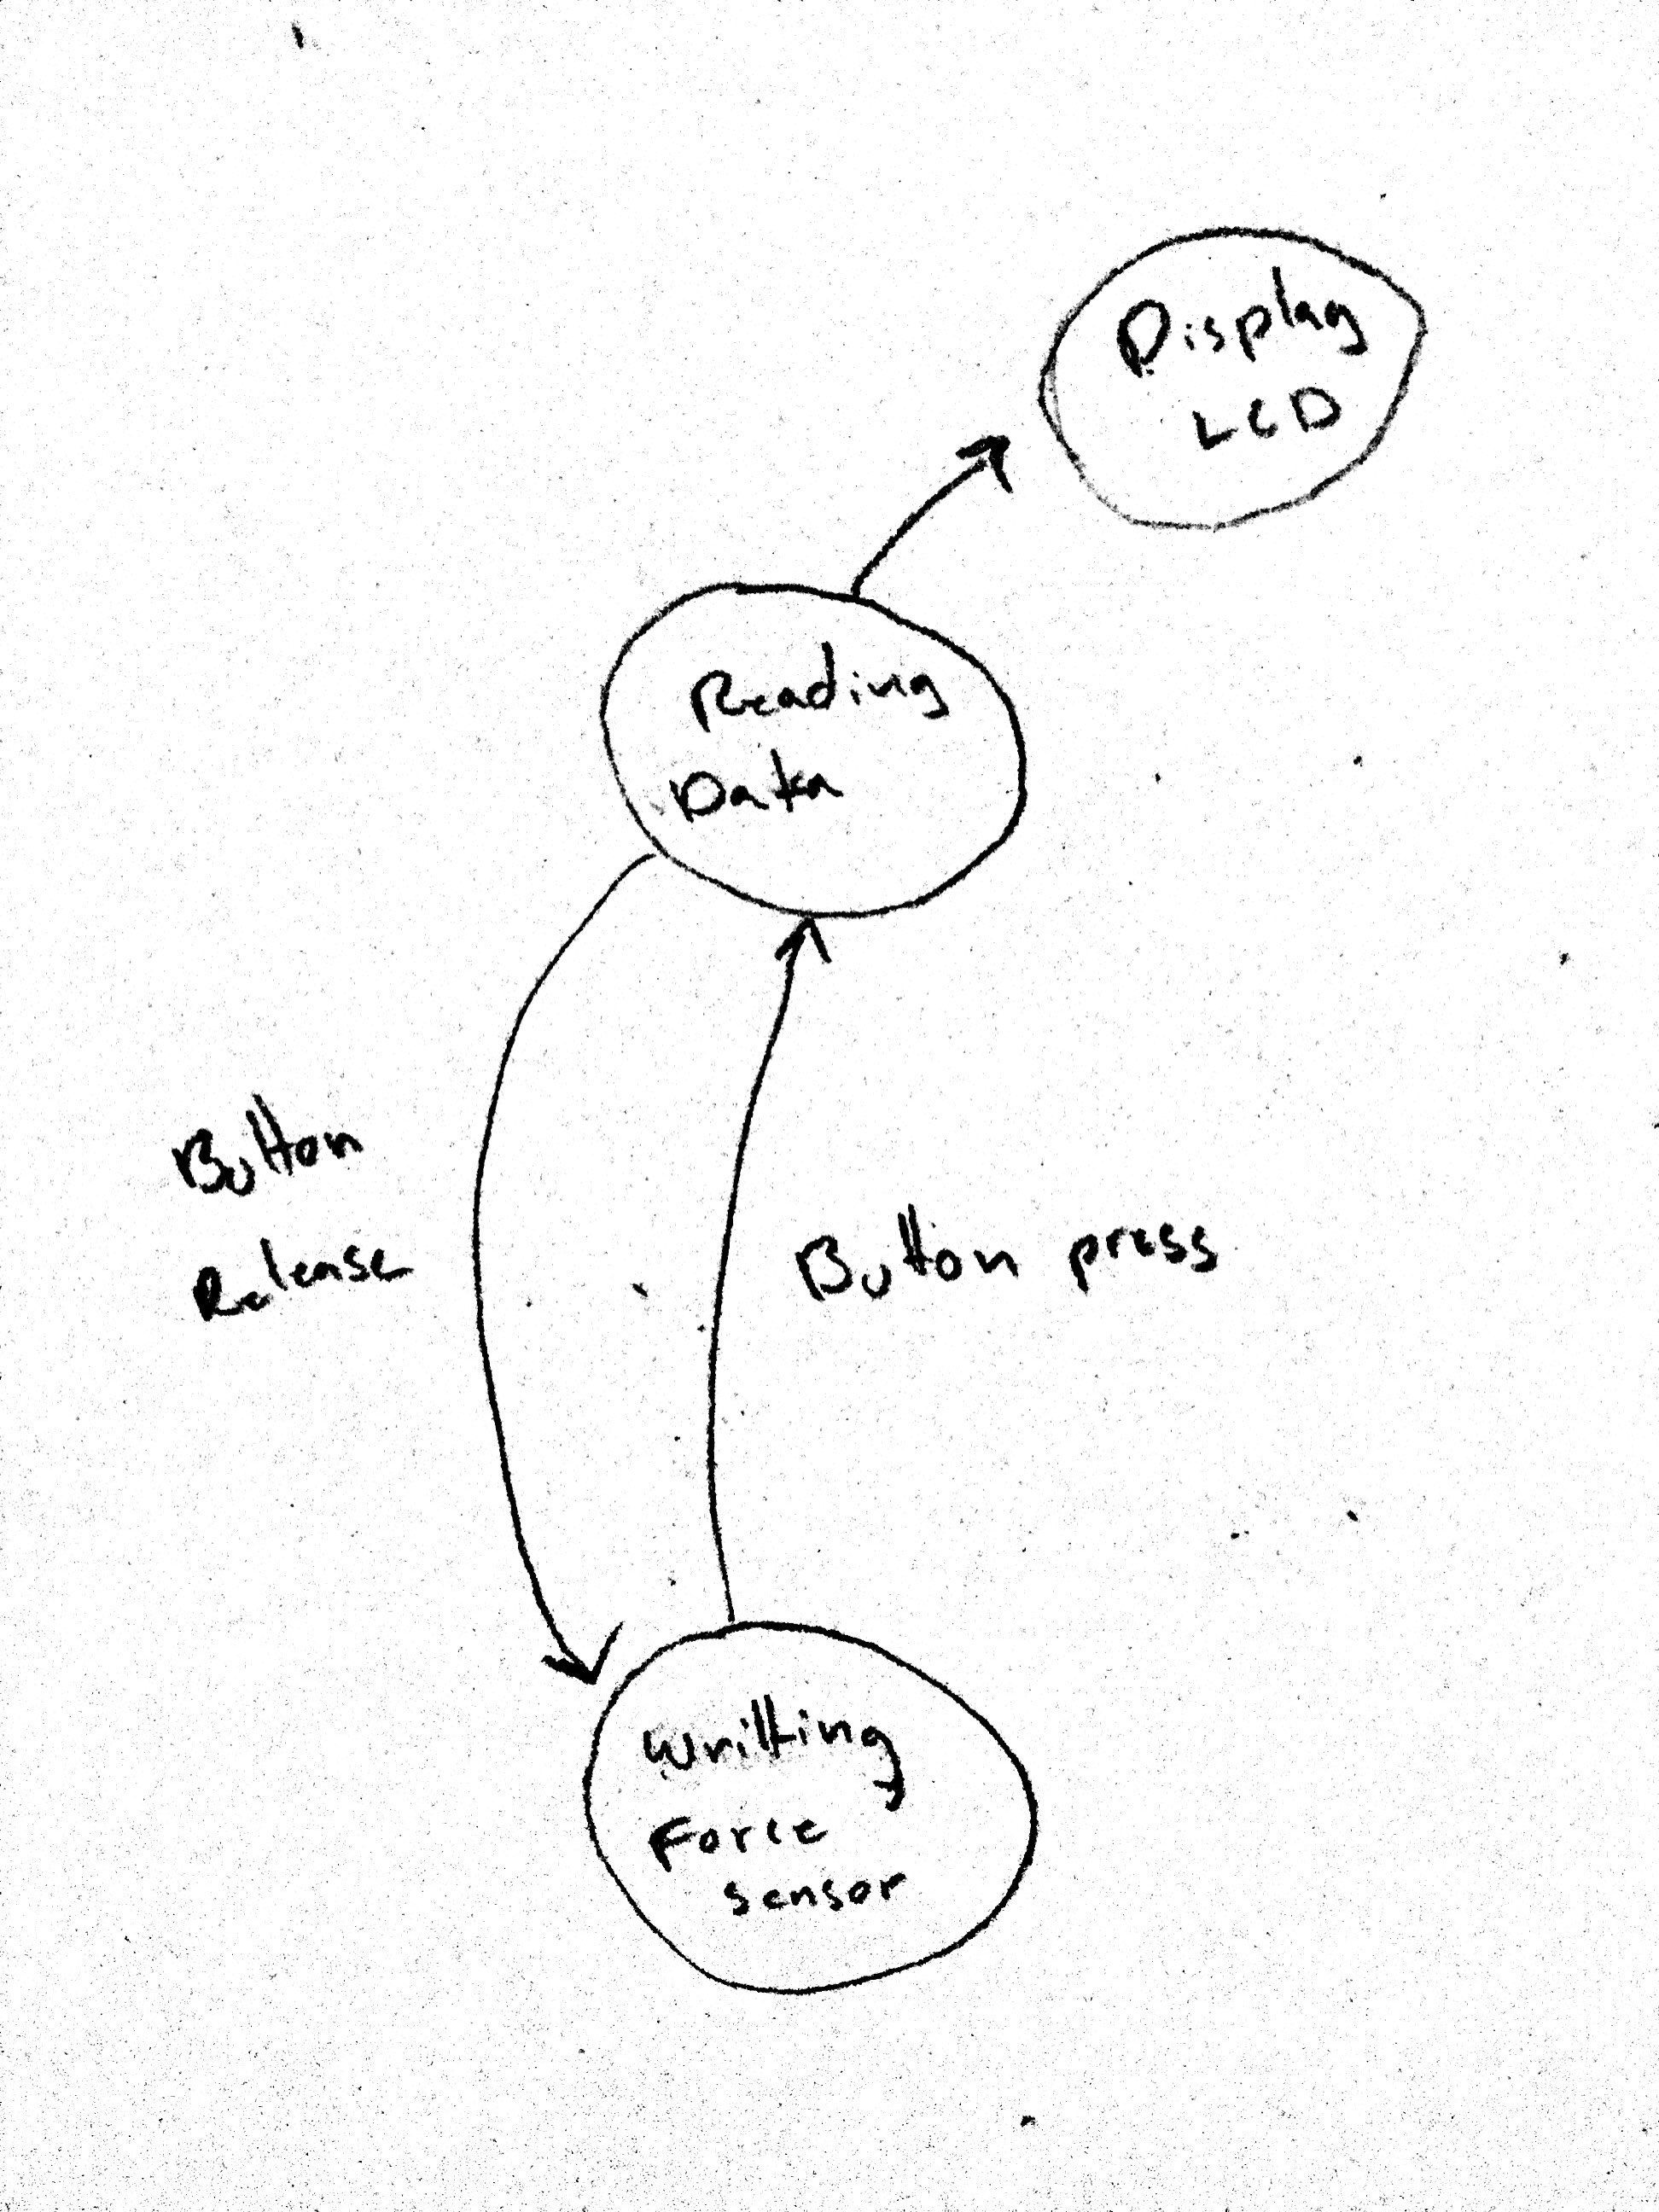 Display
LCD
Reading
Data
Button
Release
Button press
Writting
Force
sensor